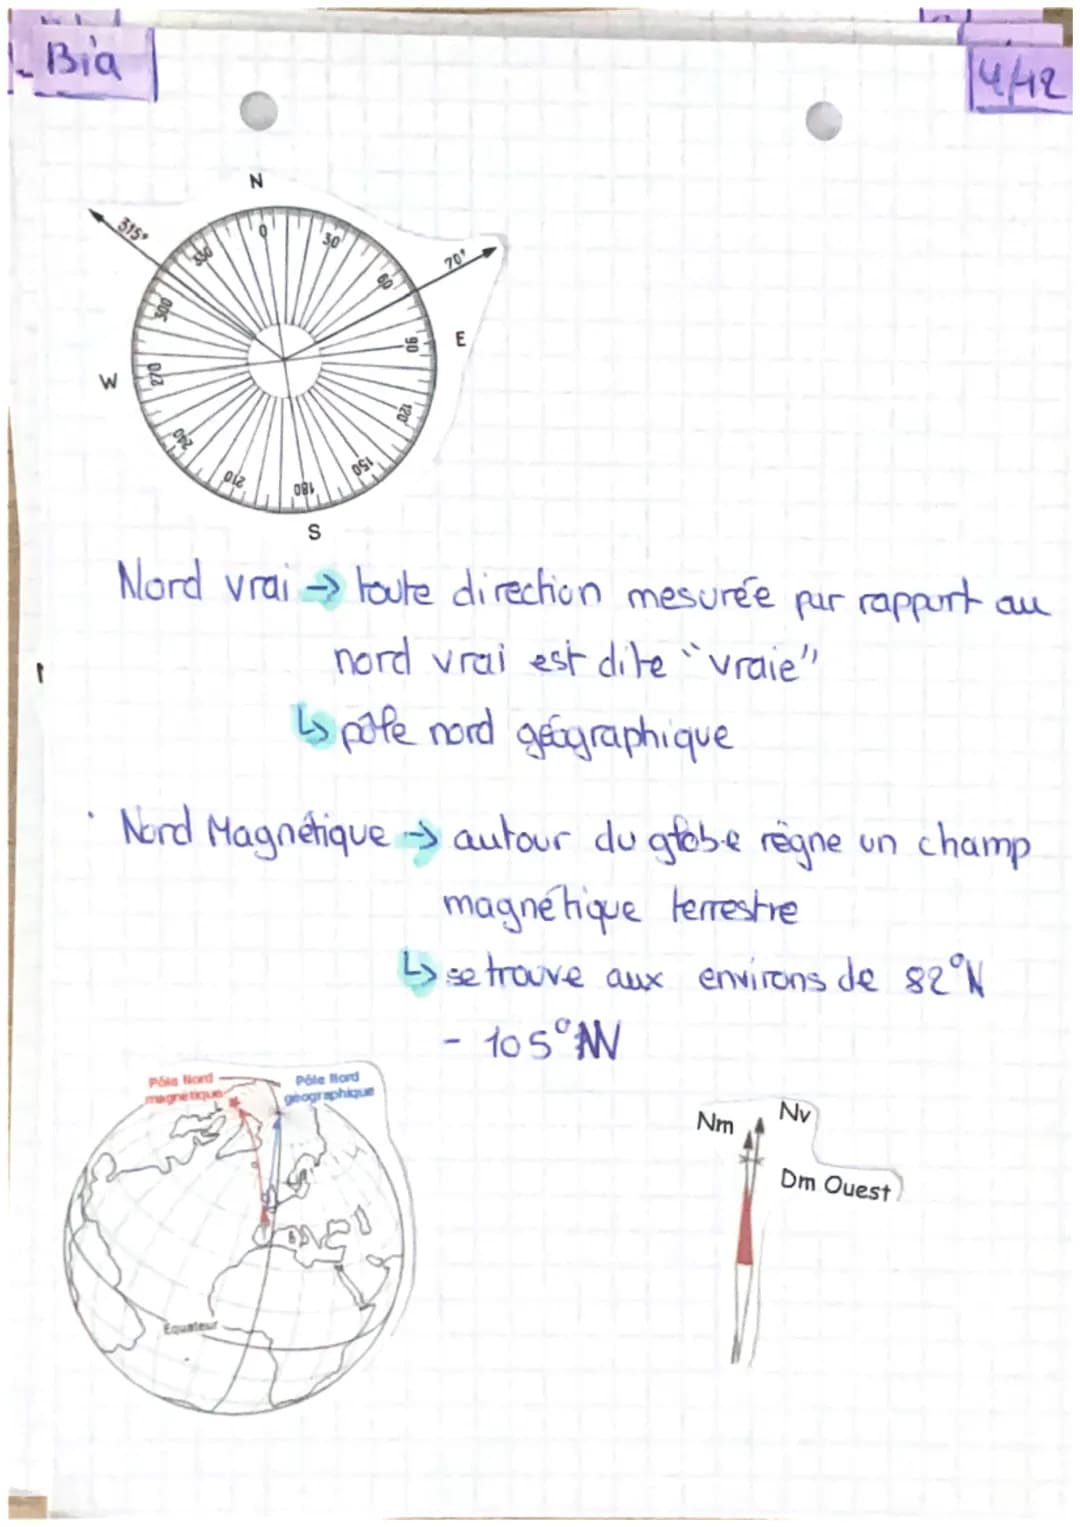 Bia
4/12
N
315°
330
0
30
60
70°
300
90
E
W
270
120
240
150
210
180
S
Nord vrai → toute direction mesurée par rapport au
nord vrai est dite "vraie"
↳ pôle nord géographique
· Nord Magnétique → autour du globe règne un champ
magnétique terrestre
↳ se trouve aux environs de 82°N
- 105°W
Pôle Nord
magnétique
Pôle Nord
géographique
Equateur
Nm
Nv
Dm Ouest